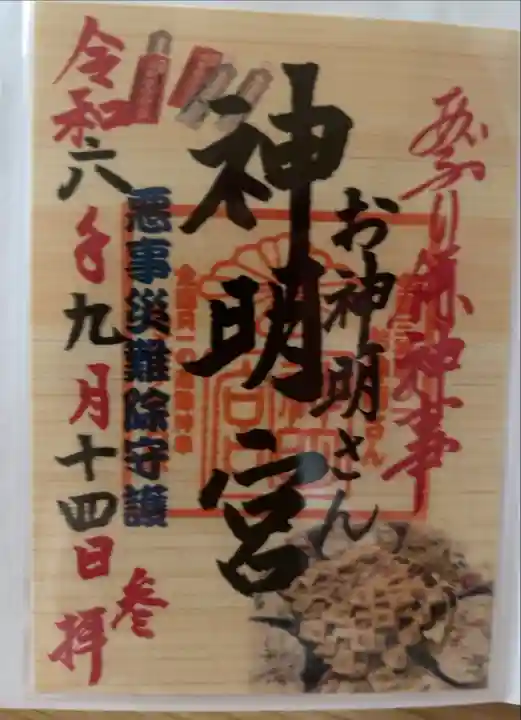 祭り版神事
お神明さん
神明宮
悪事災難除守護
令和六年九月十四日
参拝